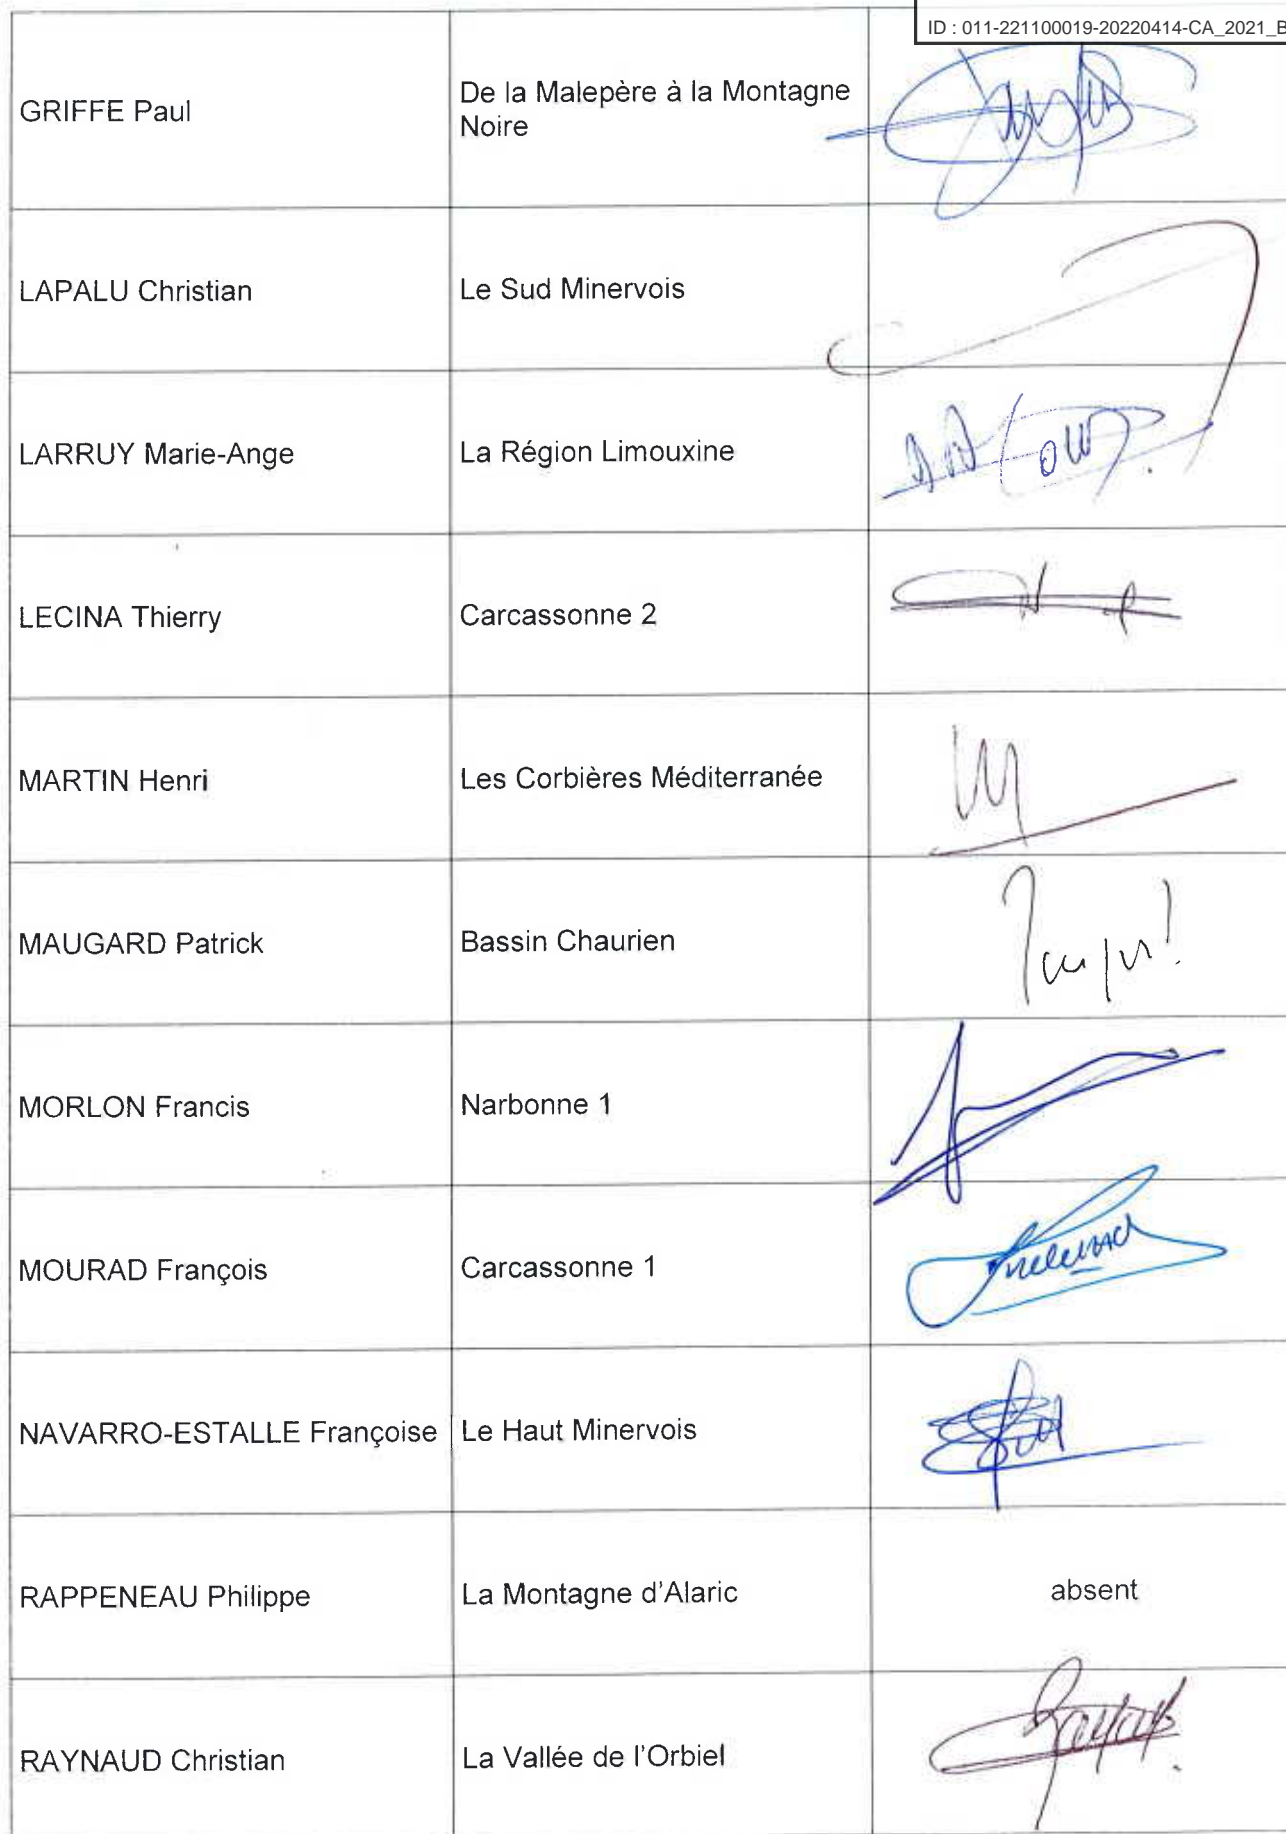 ID : 011-221100019-20220414-CA_2021_B
GRIFFE Paul
De la Malepère à la Montagne
Noire
LAPALU Christian
Le Sud Minervois
LARRUY Marie-Ange
La Région Limouxine
LECINA Thierry
Carcassonne 2
MARTIN Henri
Les Corbières Méditerranée
MAUGARD Patrick
Bassin Chaurien
MORLON Francis
Narbonne 1
MOURAD François
Carcassonne 1
NAVARRO-ESTALLE Françoise
Le Haut Minervois
RAPPENEAU Philippe
La Montagne d'Alaric
absent
RAYNAUD Christian
La Vallée de l'Orbiel